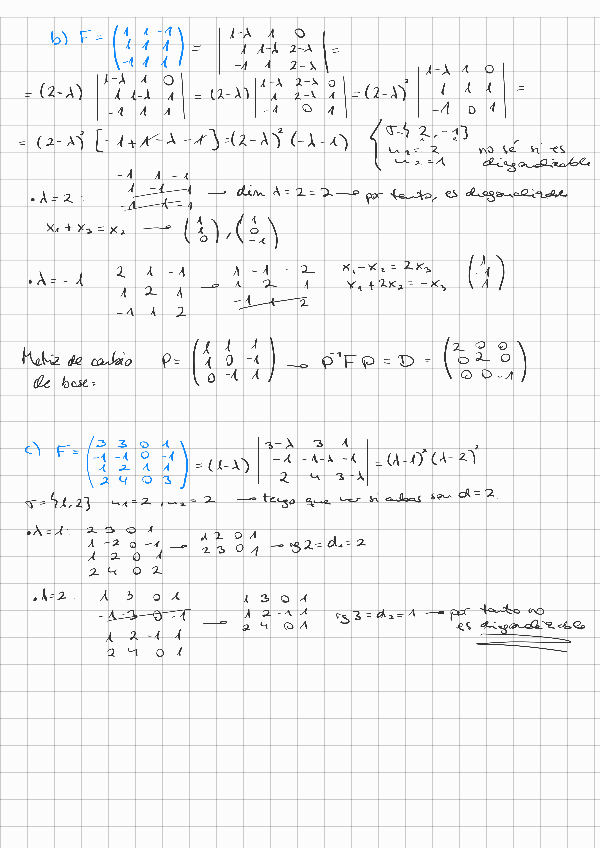 b) F = (1 1 -1 / 1 1 1 / -1 1 1) = |1-λ 1 0 / 1 1-λ 2-λ / -1 1 2-λ| =
= (2-λ) |1-λ 1 0 / 1 1-λ 1 / -1 1 1| = (2-λ) |1-λ 2-λ 0 / 1 2-λ 1 / -1 0 1| = (2-λ)² |1-λ 1 0 / 1 1 1 / -1 0 1| =
= (2-λ)² [-1+1-λ-1] = (2-λ)² (-λ-1) { σ={2, -1}
m₂ = 2 no sé si es
m₂ = 1 diagonalizable
• λ=2: -1 1 -1 / 1 -1 1 / -1 1 -1 → dim λ=2 = 2 → por tanto, es diagonalizable
x₁ + x₃ = x₂ → (1 / 1 / 0), (1 / 0 / -1)
• λ=-1 2 1 -1 / 1 2 1 / -1 1 2 → 1 -1 -2 / 1 2 1 / -1 1 2 x₁-x₂ = 2x₃ / x₁+2x₂ = -x₃ (1 / -1 / 1)
Matriz de cambio P = (1 1 1 / 1 0 -1 / 0 -1 1) → P⁻¹FP = D = (2 0 0 / 0 2 0 / 0 0 -1)
de base:
c) F = (3 3 0 1 / -1 -1 0 -1 / 1 2 1 1 / 2 4 0 3) = (1-λ) |3-λ 3 1 / -1 -1-λ -1 / 2 4 3-λ| = (λ-1)² (λ-2)²
σ={1,2} m₁=2, m₂=2 → tengo que ver si ambas son d=2
• λ=1: 2 3 0 1 / 1 -2 0 -1 / 1 2 0 1 / 2 4 0 2 → 1 2 0 1 / 2 3 0 1 → rg 2 = d₁ = 2
• λ=2: 1 3 0 1 / -1 -3 0 -1 / 1 2 -1 1 / 2 4 0 1 → 1 3 0 1 / 1 2 -1 1 / 2 4 0 1 rg 3 = d₂ = 1 → por tanto no
es diagonalizable